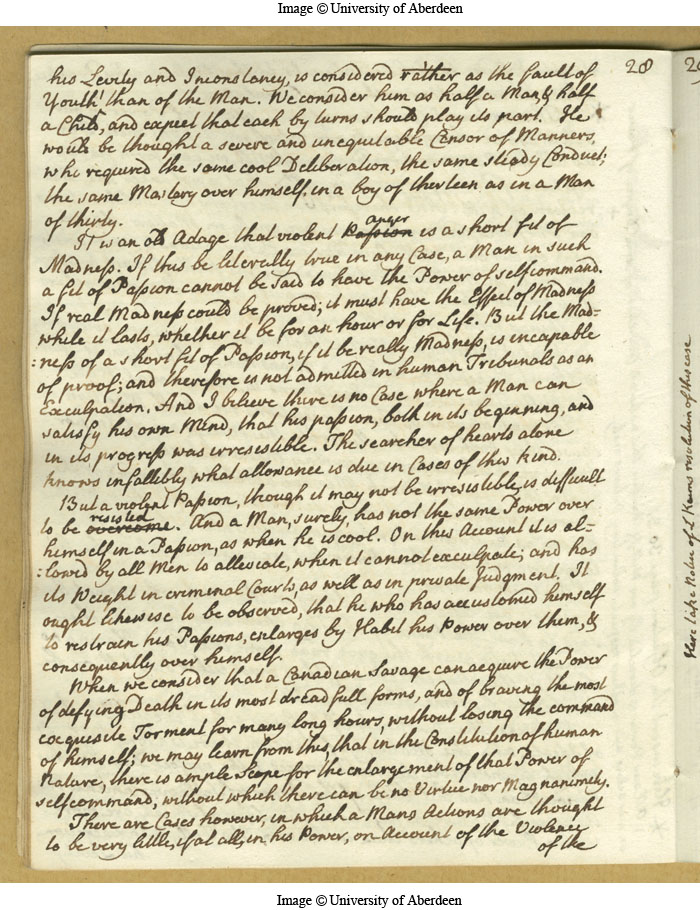 Image © University of Aberdeen
28
his Levity and Inconstancy, is considered rather as the fault of
Youth than of the Man. We consider him as half a Man & half
a Child, and expect that each by turns should play its part. He
would be thought a severe and unequitable Censor of Manners,
who required the same cool Deliberation, the same steady Conduct;
the same Mastery over himself, in a boy of thirteen as in a Man
of thirty.
It is an old Adage that violent Passion anger is a short fit of
Madness. If this be literally true in any Case, a Man in such
a fit of Passion cannot be said to have the Power of selfcommand.
If real Madness could be proved; it must have the Effect of Madness
while it lasts, whether it be for an hour or for Life. But the Mad=
:ness of a short fit of Passion, if it be really Madness, is incapable
of proof; and therefore is not admitted in human Tribunals as an
Exculpation. And I believe there is no Case where a Man can
satisfy his own Mind, that his passion, both in its beginning, and
in its progress was irresistible. The searcher of hearts alone
knows infallibly what allowance is due in Cases of this kind.
But a violent Passion, though it may not be irresistible, is difficult
to be overcome resisted. And a Man, surely, has not the same Power over
himself in a Passion, as when he is cool. On this Account it is al=
:lowed by all Men to alleviate, when it cannot exculpate; and has
its Weight in criminal Courts, as well as in private Judgment. It
ought likewise to be observed, that he who has accustomed himself
to restrain his Passions, enlarges by Habit his Power over them, &
consequently over himself.
When we consider that a Canadian Savage can acquire the Power
of defying Death in its most dreadfull forms, and of braving the most
exquisite Torment for many long hours, without losing the command
of himself; we may learn from this, that in the Constitution of human
Nature, there is ample Scope for the enlargement of that Power of
selfcommand, without which there can be no Virtue nor Magnanimity.
There are Cases however, in which a Mans Actions are thought
to be very little, if at all, in his Power, on Account of the Violence
of the
Here take Notice of L Kaims resolution of this case
Image © University of Aberdeen